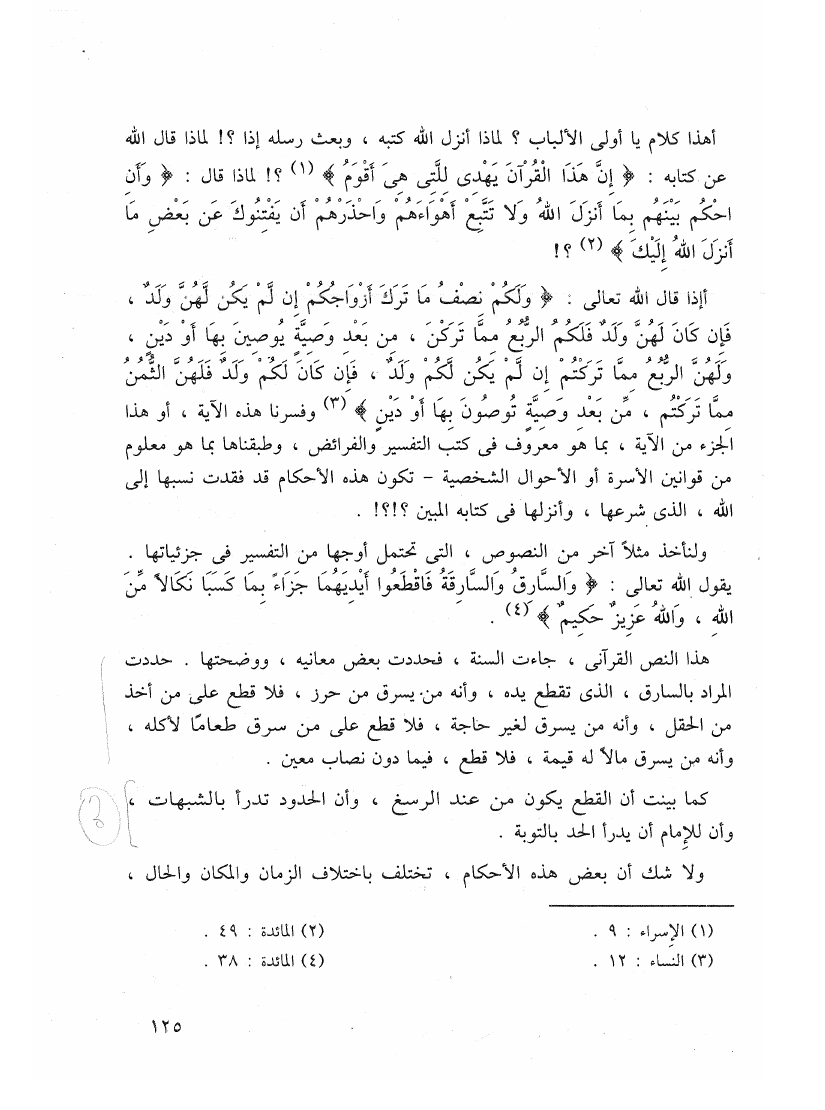 أهذا كلام يا أولى الألباب ؟ لماذا أنزل الله كتبه ، وبعث رسله إذا ؟! لماذا قال الله
عن كتابه : ﴿ إِنَّ هَذَا الْقُرْآنَ يَهْدِى لِلَّتِى هِىَ أَقْوَمُ ﴾ (١) ؟! لماذا قال : ﴿ وَأَنِ
احْكُم بَيْنَهُم بِمَا أَنزَلَ اللهُ وَلَا تَتَّبِعْ أَهْوَاءَهُمْ وَاحْذَرْهُمْ أَن يَفْتِنُوكَ عَن بَعْضِ مَا
أَنزَلَ اللهُ إِلَيْكَ ﴾ (٢) ؟!
أإذا قال الله تعالى : ﴿ وَلَكُمْ نِصْفُ مَا تَرَكَ أَزْوَاجُكُمْ إِن لَّمْ يَكُن لَّهُنَّ وَلَدٌ ،
فَإِن كَانَ لَهُنَّ وَلَدٌ فَلَكُمُ الرُّبُعُ مِمَّا تَرَكْنَ ، مِن بَعْدِ وَصِيَّةٍ يُوصِينَ بِهَا أَوْ دَيْنٍ ،
وَلَهُنَّ الرُّبُعُ مِمَّا تَرَكْتُمْ إِن لَّمْ يَكُن لَّكُمْ وَلَدٌ ، فَإِن كَانَ لَكُمْ وَلَدٌ فَلَهُنَّ الثُّمُنُ
مِمَّا تَرَكْتُم ، مِّن بَعْدِ وَصِيَّةٍ تُوصُونَ بِهَا أَوْ دَيْنٍ ﴾ (٣) وفسرنا هذه الآية ، أو هذا
الجزء من الآية ، بما هو معروف فى كتب التفسير والفرائض ، وطبقناها بما هو معلوم
من قوانين الأسرة أو الأحوال الشخصية – تكون هذه الأحكام قد فقدت نسبها إلى
الله ، الذى شرعها ، وأنزلها فى كتابه المبين ؟!؟! .
ولنأخذ مثلاً آخر من النصوص ، التى تحتمل أوجها من التفسير فى جزئياتها .
يقول الله تعالى : ﴿ وَالسَّارِقُ وَالسَّارِقَةُ فَاقْطَعُوا أَيْدِيَهُمَا جَزَاءً بِمَا كَسَبَا نَكَالاً مِّنَ
اللهِ ، وَاللهُ عَزِيزٌ حَكِيمٌ ﴾ (٤) .
هذا النص القرآنى ، جاءت السنة ، فحددت بعض معانيه ، ووضحتها . حددت
المراد بالسارق ، الذى تقطع يده ، وأنه من يسرق من حرز ، فلا قطع على من أخذ
من الحقل ، وأنه من يسرق لغير حاجة ، فلا قطع على من سرق طعامًا لأكله ،
وأنه من يسرق مالاً له قيمة ، فلا قطع ، فيما دون نصاب معين .
كما بينت أن القطع يكون من عند الرسغ ، وأن الحدود تدرأ بالشبهات ،
وأن للإمام أن يدرأ الحد بالتوبة .
ولا شك أن بعض هذه الأحكام ، تختلف باختلاف الزمان والمكان والحال ،
(١) الإسراء : ٩ .
(٢) المائدة : ٤٩ .
(٣) النساء : ١٢ .
(٤) المائدة : ٣٨ .
١٢٥